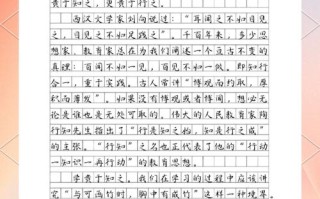 贵于知之，更贵于行之。
西汉文学家刘向说过：“耳闻之不如目见
之，目见之不如足践之”。千百年来，多少思
想家、教育家总在为我们阐述一个亘古不变的
真理：百闻不如一见，百见不如一做。即知行
合一，重于实践。古人常讲“博观而约取，厚
积而薄发”。如果没有博观或者博闻，想必无
论是谁也是无处可取。伟大的人民教育家陶
行知先生指出了“行是知之始，知是行之成”
的主张。“行知”之名也正代表了他的“行动
—知识—再行动”的教育思想。
学贵于知之。我们在学习的过程中应该讲
究“与可画竹时，胸中有成竹”这样一种境界。